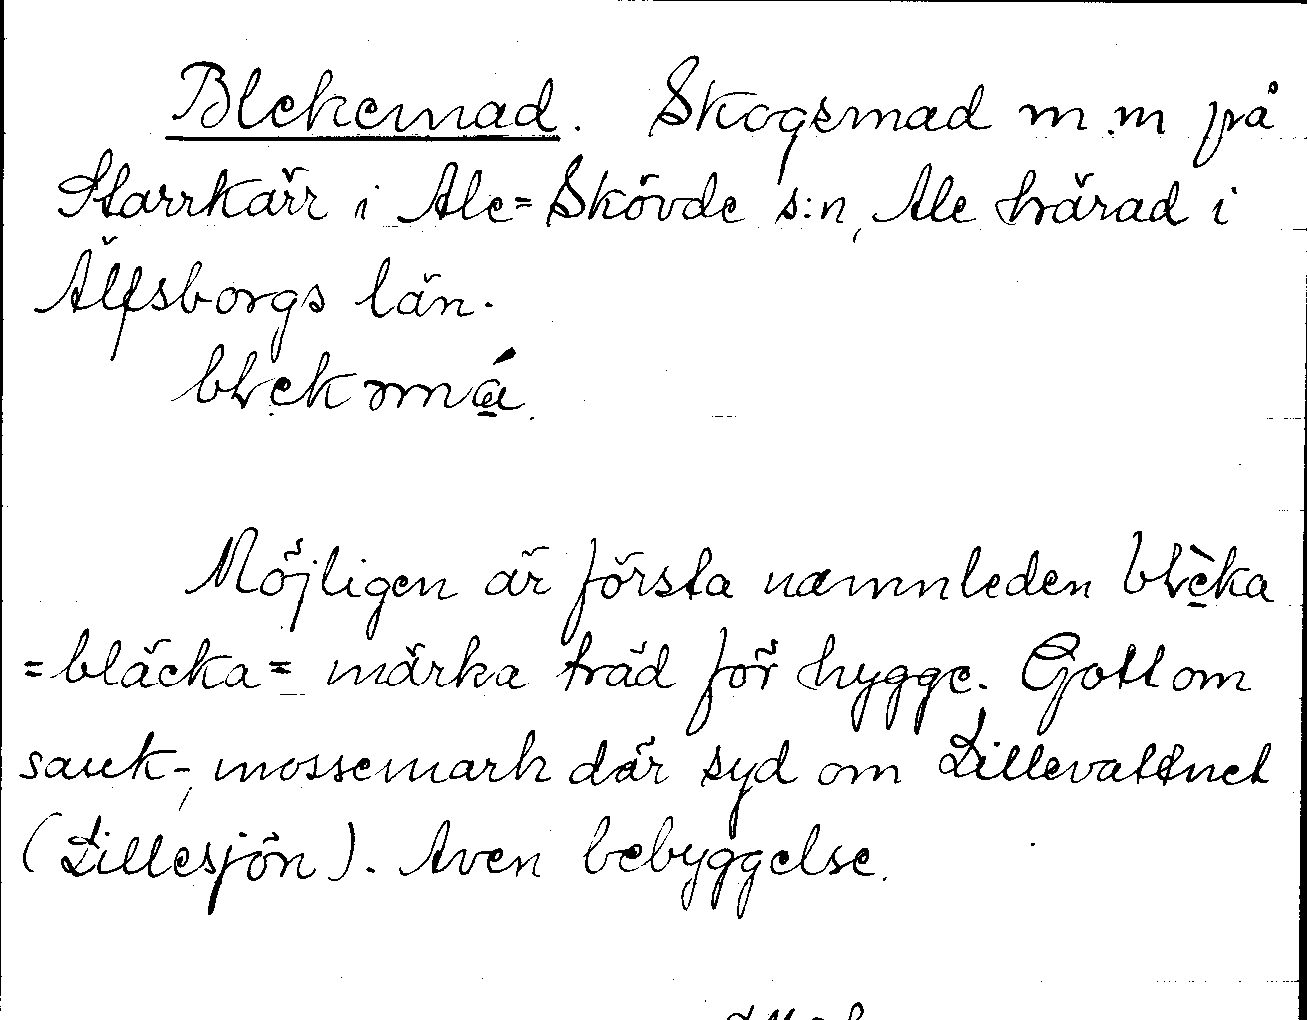 Blekemad. Skogsmad m.m på
Starrkärr i Ale=Skövde s:n, Ale härad i
Älfsborgs län.
blekmá.
Möjligen är första namnleden blèka
=bläcka= märka träd för hygge. Gott om
sank-, mossemark där syd om Lillevattnet
(Lillesjön). Även bebyggelse.